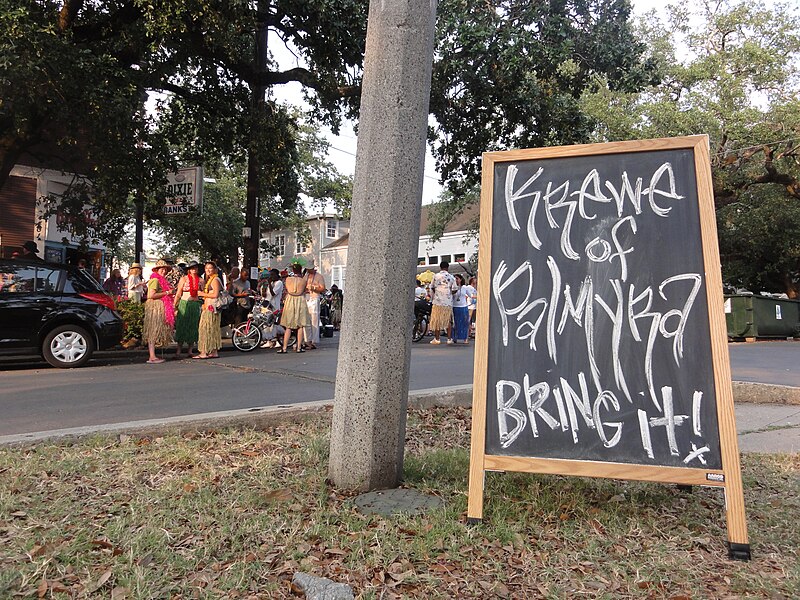 KREWE
of
PALMYRA
BRING it!
DIXIE